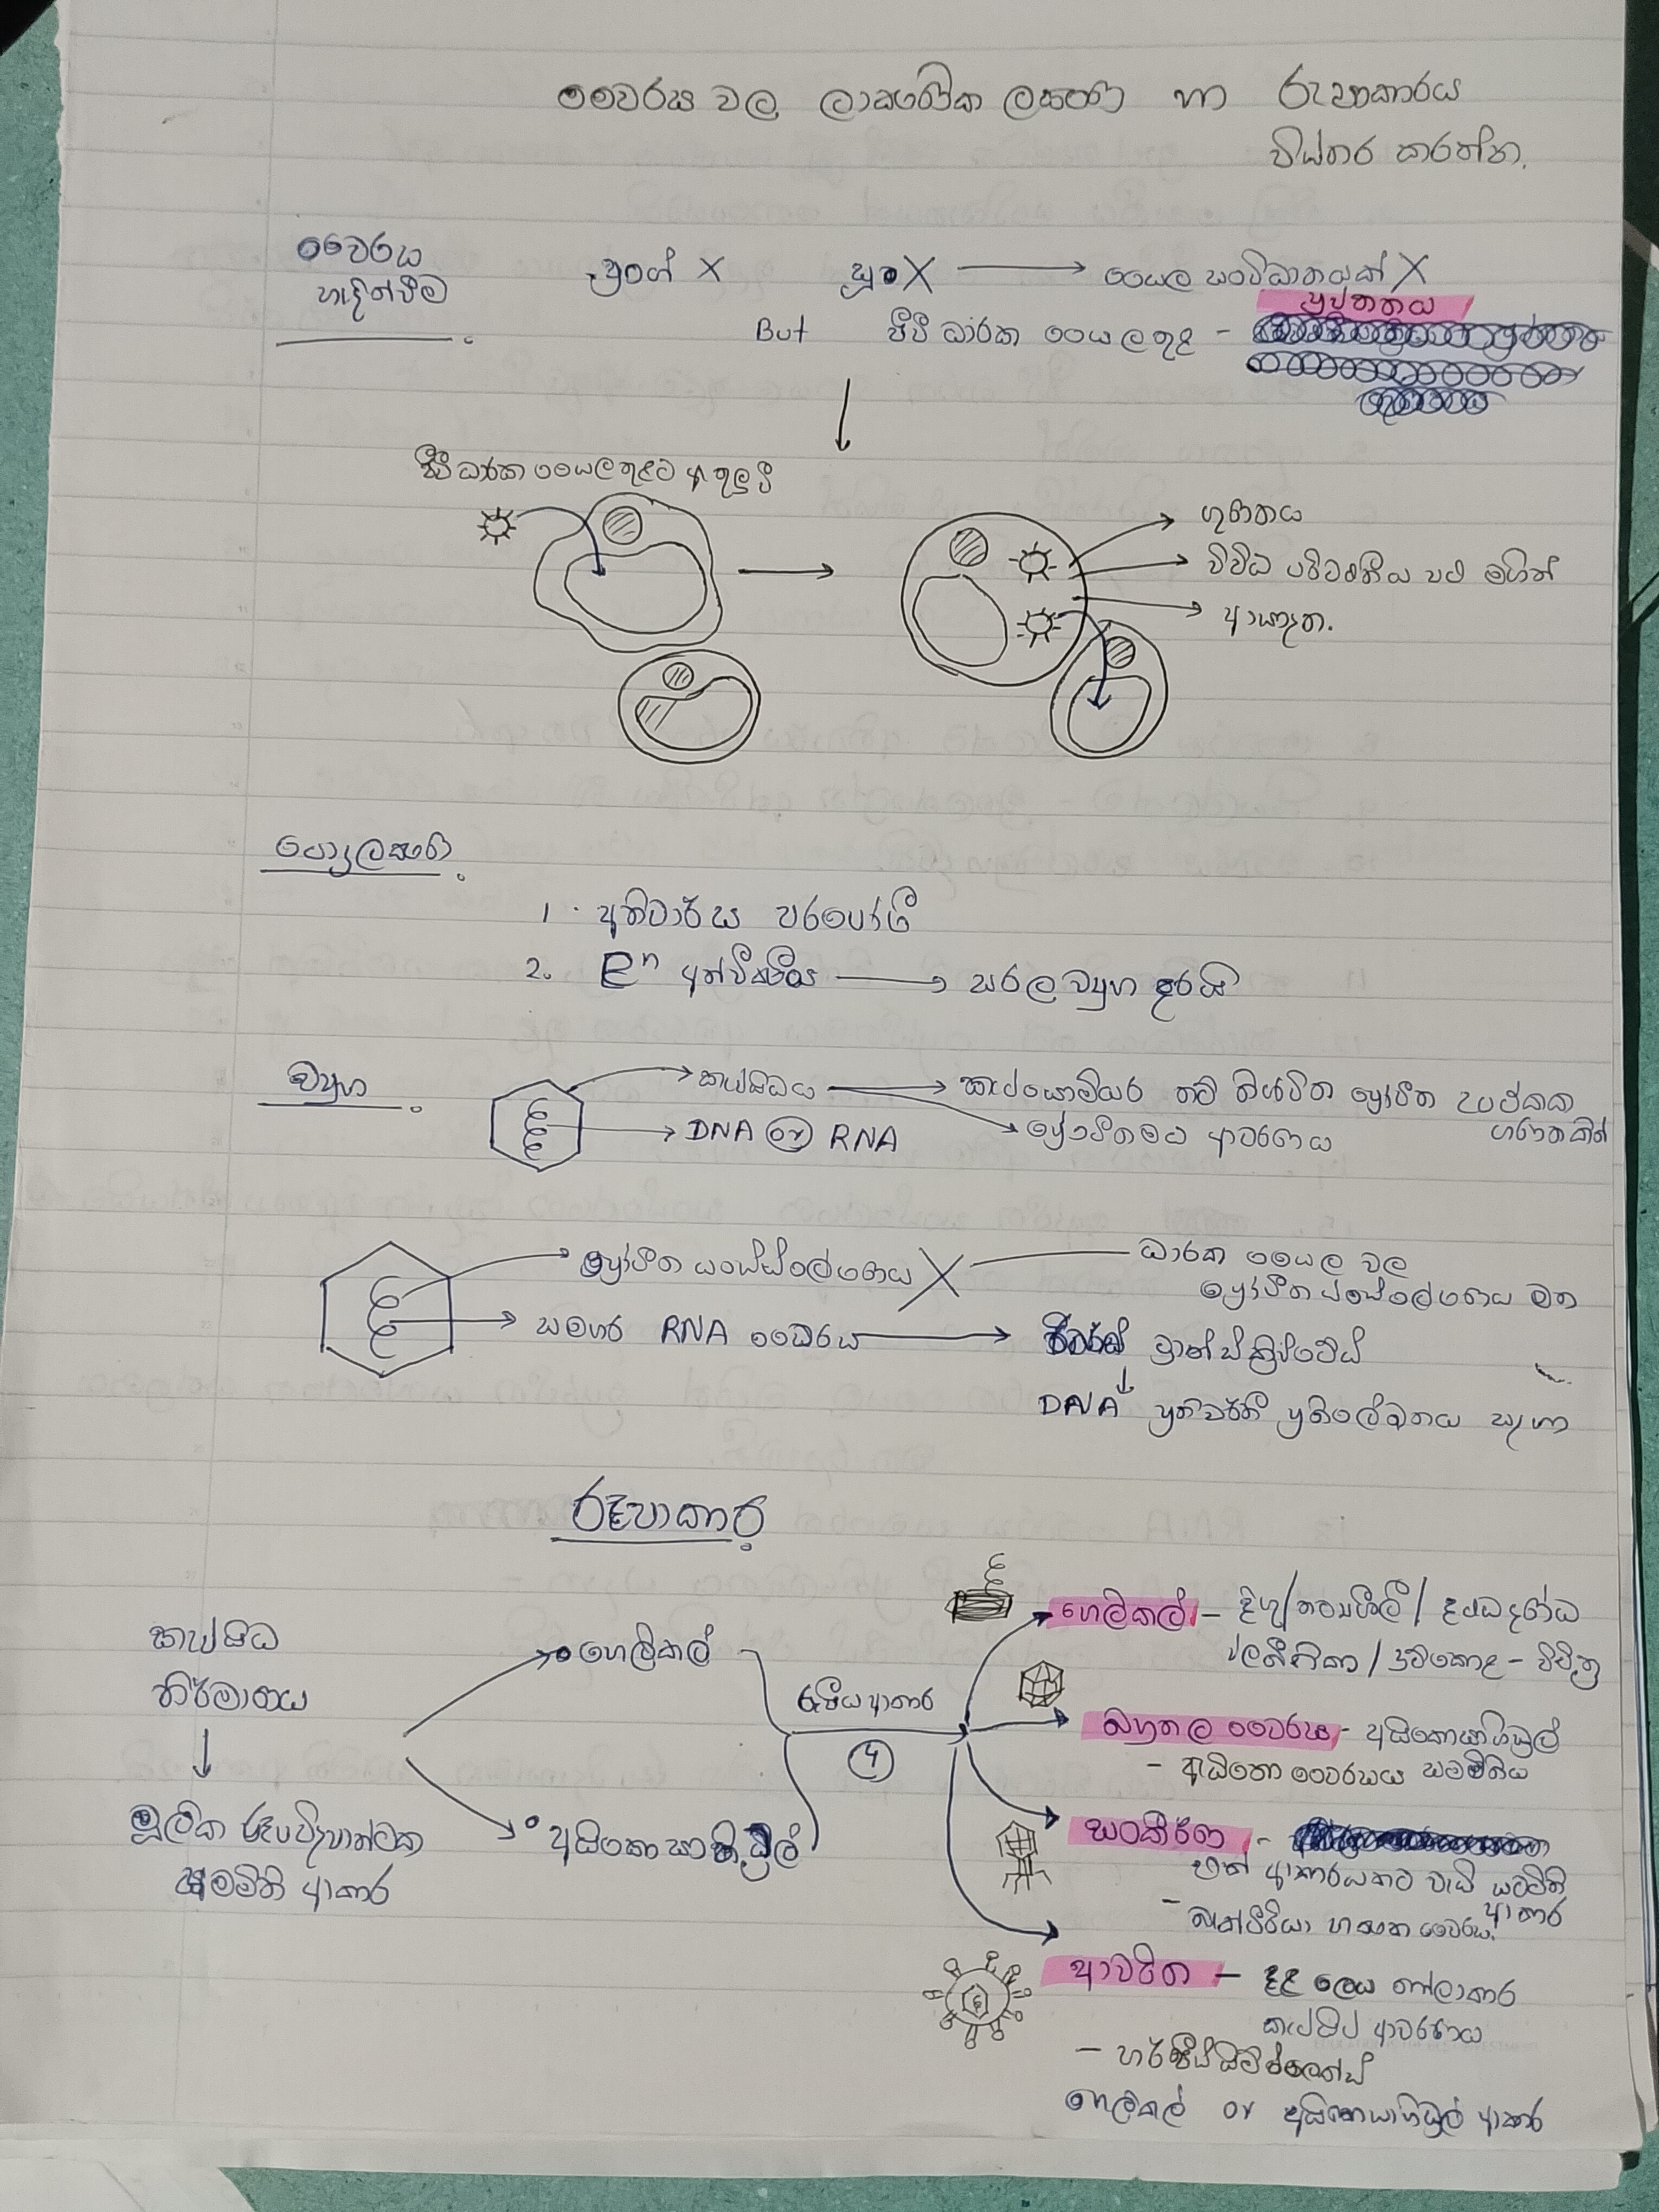 වෛරස වල ලාක්ෂණික ලක්ෂණ හා රූපාකාරය
විස්තර කරන්න.
වෛරස
හැඳින්වීම
ප්‍රාග් X සූ X → සෛල සංවිධානයක් X
ප්‍රජනනය
But ජීවී ධාරක සෛල තුළ -
ජීවී ධාරක සෛල තුළට ඇතුලු වී
ගුණනය
විවිධ පරිවෘත්තීය පථ මගින්
ආසාදන.
පොදු ලක්ෂණ
1. අනිවාර්ය පරපෝෂී
2. En අන්වීක්ෂීය → සරල ව්‍යුහ දරයි
ව්‍යුහ
කැප්සිඩය → කැප්සොමියර නම් නිශ්චිත ප්‍රෝටීන උපඒකක
ගණනකින්
DNA or RNA → ප්‍රෝටීනමය ආවරණය
ප්‍රෝටීන සංස්ලේෂණය X ධාරක සෛල වල
ප්‍රෝටීන සංස්ලේෂණය මත
සමහර RNA වෛරස → රිවර්ස් ට්‍රාන්ස්ක්‍රිප්ටේස්
DNA ප්‍රතිවර්තී ප්‍රතිලේඛනය සඳහා
රූපාකාර
හෙලිකල් - දිගු/නම්‍යශීලී/දෘඪ දණ්ඩ
කැප්සිඩ
නිර්මාණය
හෙලිකල්
දුම්කොළ - විචිත්‍ර
රූපීය ආකාර
4
බහුතල වෛරස - අයිකොසාහිඩ්‍රල්
- ඇඩිනෝ වෛරසය සමමිතිය
මූලික රූපවිද්‍යාත්මක
සමමිති ආකාර
අයිකොසාහිඩ්‍රල්
සංකීර්ණ -
එක් ආකාරයකට වැඩි සමමිති
ආකාර
- බැක්ටීරියා භක්ෂක වෛරස.
ආවරිත - දළ ලෙස ගෝලාකාර
කැප්සිඩ ආවරණය
- හර්පීස් සිම්ප්ලෙක්ස්
හෙලිකල් or අයිකොසාහිඩ්‍රල් ආකාර